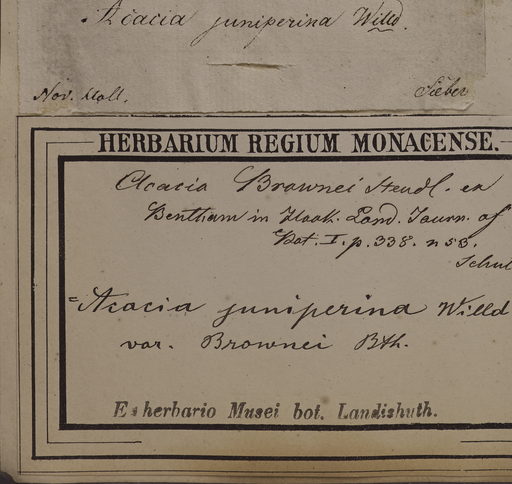 Acacia juniperina Willd.
Nov. Holl. Sieber
HERBARIUM REGIUM MONACENSE.
Acacia Brownei Steudl. ex
Bentham in Hook. Lond. Journ. of
Bot. I. p. 338. n 53.
Schul
=Acacia juniperina Willd
var. Brownei Bth.
Ex herbario Musei bot. Landishuth.